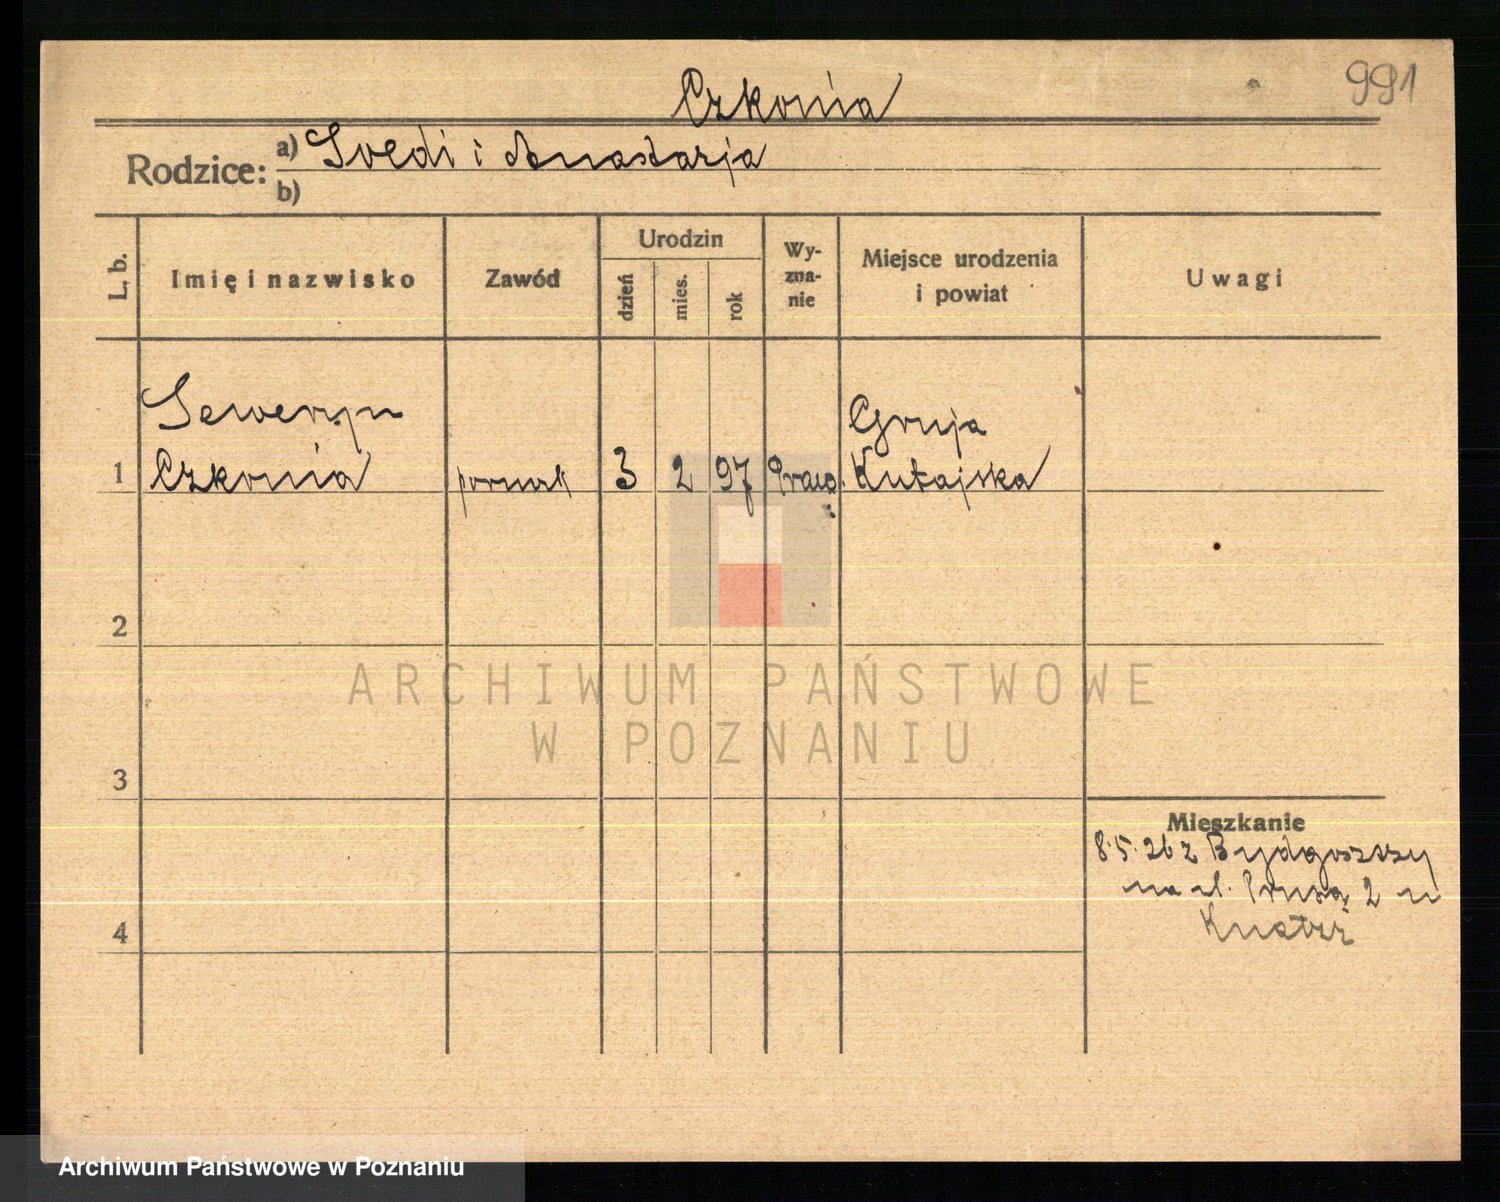 991
Czkonia
Rodzice: a) Soedi i Anastazja
b)
L. b.
Imię i nazwisko
Zawód
Urodzin
dzień
mies.
rok
Wy-
zna-
nie
Miejsce urodzenia
i powiat
Uwagi
Seweryn
Gruja
1 Czkonia porucz 3 2 97 Praw. Kutajska
2
3
4
Mieszkanie
8.5.26 z Bydgoszczy
na ul. 2
ARCHIWUM PAŃSTWOWE
W POZNANIU
Archiwum Państwowe w Poznaniu